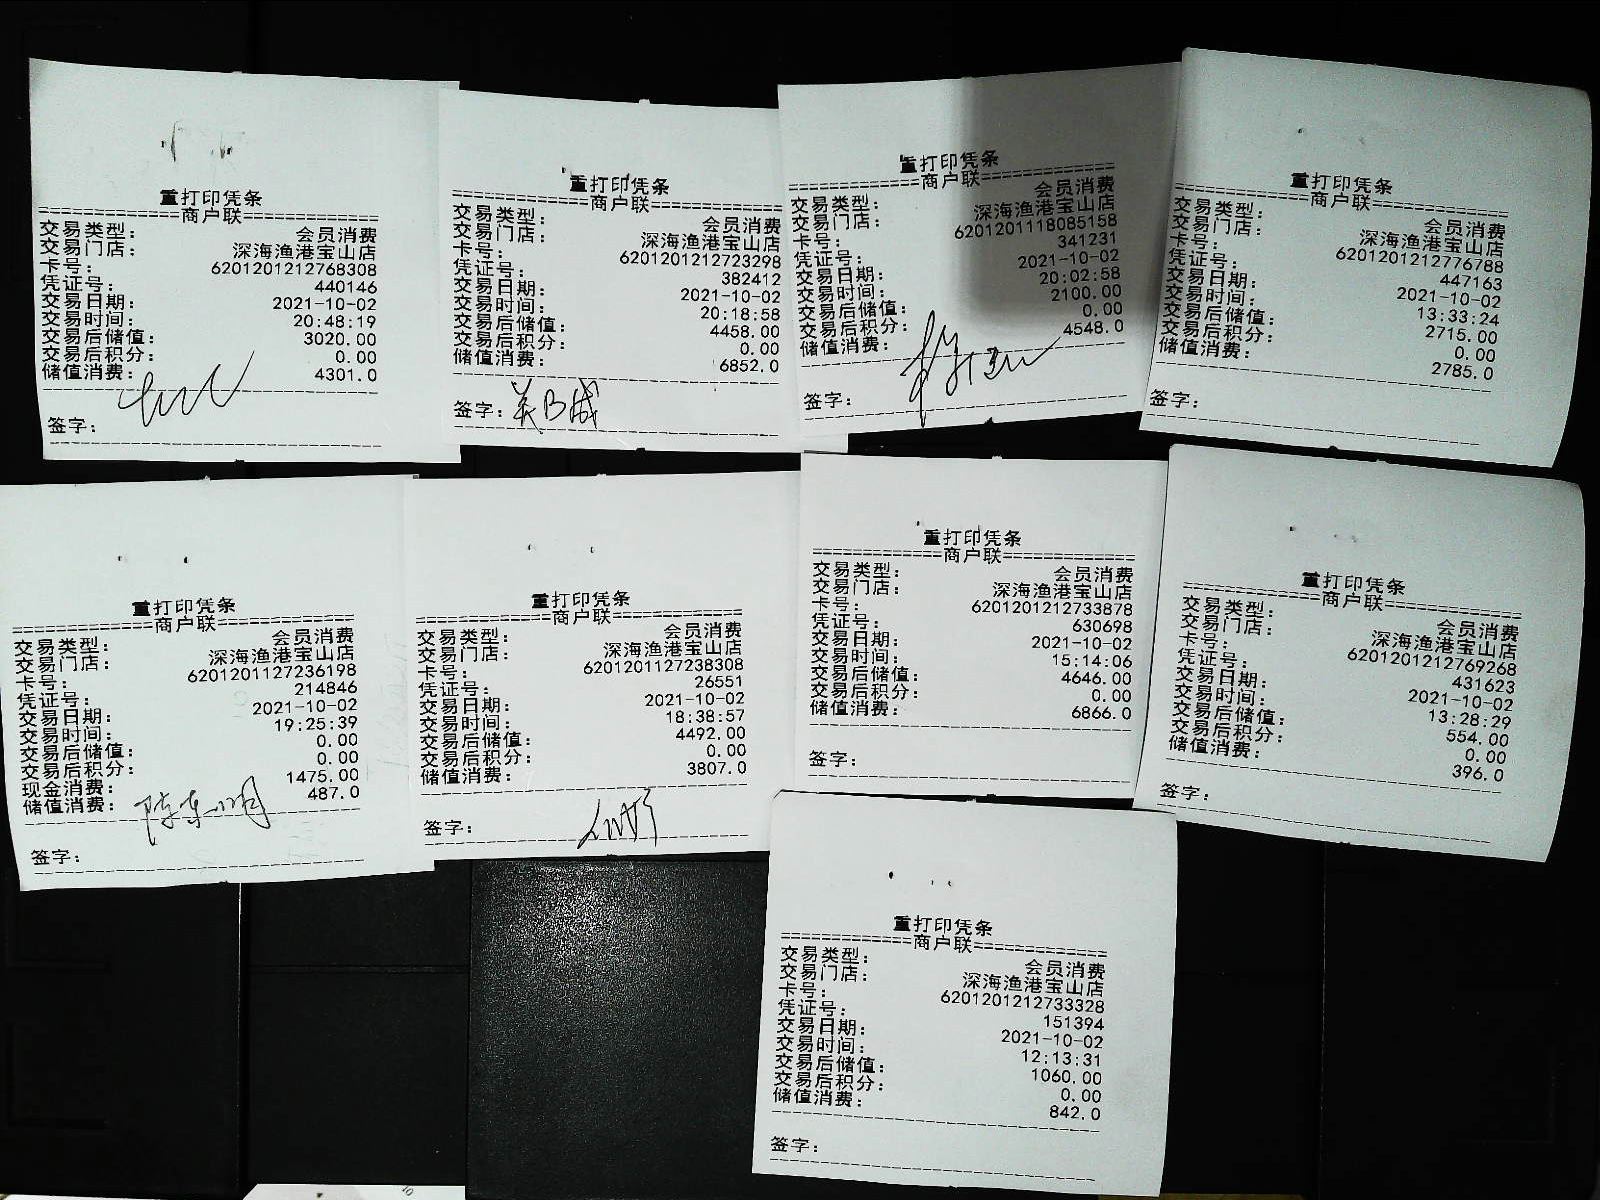 重打印凭条
==============商户联==============
交易类型: 会员消费
交易门店: 深海渔港宝山店
卡号: 6201201212768308
凭证号: 440146
交易日期: 2021-10-02
交易时间: 20:48:19
交易后储值: 3020.00
交易后积分: 0.00
储值消费: 4301.0
签字:
重打印凭条
==============商户联==============
交易类型: 会员消费
交易门店: 深海渔港宝山店
卡号: 6201201212723298
凭证号: 382412
交易日期: 2021-10-02
交易时间: 20:18:58
交易后储值: 4458.00
交易后积分: 0.00
储值消费: 6852.0
签字:
重打印凭条
==============商户联==============
交易类型: 会员消费
交易门店: 深海渔港宝山店
卡号: 6201201118085158
凭证号: 341231
交易日期: 2021-10-02
交易时间: 20:02:58
交易后储值: 2100.00
交易后积分: 0.00
储值消费: 4548.0
签字:
重打印凭条
==============商户联==============
交易类型: 会员消费
交易门店: 深海渔港宝山店
卡号: 6201201212776788
凭证号: 447163
交易日期: 2021-10-02
交易时间: 13:33:24
交易后储值: 2715.00
交易后积分: 0.00
储值消费: 2785.0
签字:
重打印凭条
==============商户联==============
交易类型: 会员消费
交易门店: 深海渔港宝山店
卡号: 6201201127236198
凭证号: 214846
交易日期: 2021-10-02
交易时间: 19:25:39
交易后储值: 0.00
交易后积分: 0.00
现金消费: 1475.00
储值消费: 487.0
签字:
重打印凭条
==============商户联==============
交易类型: 会员消费
交易门店: 深海渔港宝山店
卡号: 6201201127238308
凭证号: 26551
交易日期: 2021-10-02
交易时间: 18:38:57
交易后储值: 4492.00
交易后积分: 0.00
储值消费: 3807.0
签字:
重打印凭条
==============商户联==============
交易类型: 会员消费
交易门店: 深海渔港宝山店
卡号: 6201201212733878
凭证号: 630698
交易日期: 2021-10-02
交易时间: 15:14:06
交易后储值: 4646.00
交易后积分: 0.00
储值消费: 6866.0
签字:
重打印凭条
==============商户联==============
交易类型: 会员消费
交易门店: 深海渔港宝山店
卡号: 6201201212769268
凭证号: 431623
交易日期: 2021-10-02
交易时间: 13:28:29
交易后储值: 554.00
交易后积分: 0.00
储值消费: 396.0
签字:
重打印凭条
==============商户联==============
交易类型: 会员消费
交易门店: 深海渔港宝山店
卡号: 6201201212733328
凭证号: 151394
交易日期: 2021-10-02
交易时间: 12:13:31
交易后储值: 1060.00
交易后积分: 0.00
储值消费: 842.0
签字: